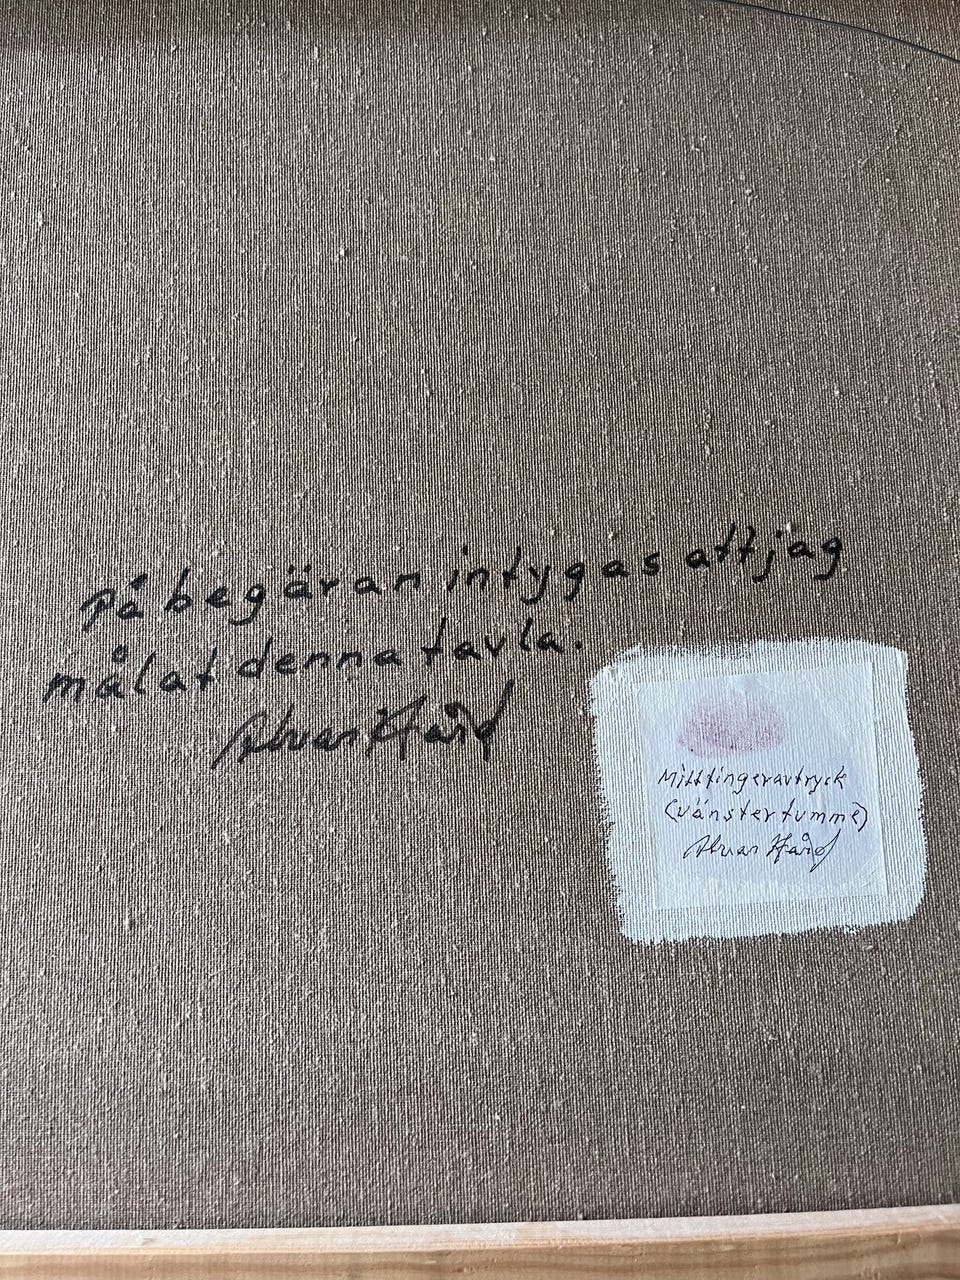 på begäran intygas att jag
målat denna tavla.
Alvar Hård
Mitt fingeravtryck
(vänster tumme)
Alvar Hård